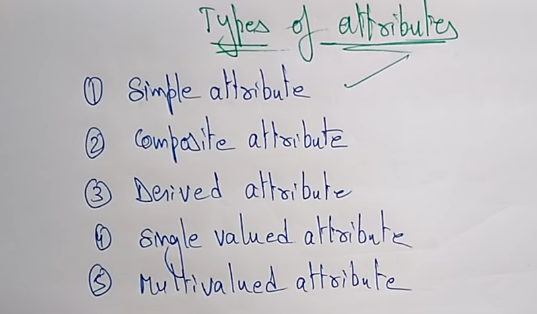 Types of attributes
① Simple attribute
② Composite attribute
③ Derived attribute
④ Single valued attribute
⑤ Multivalued attribute